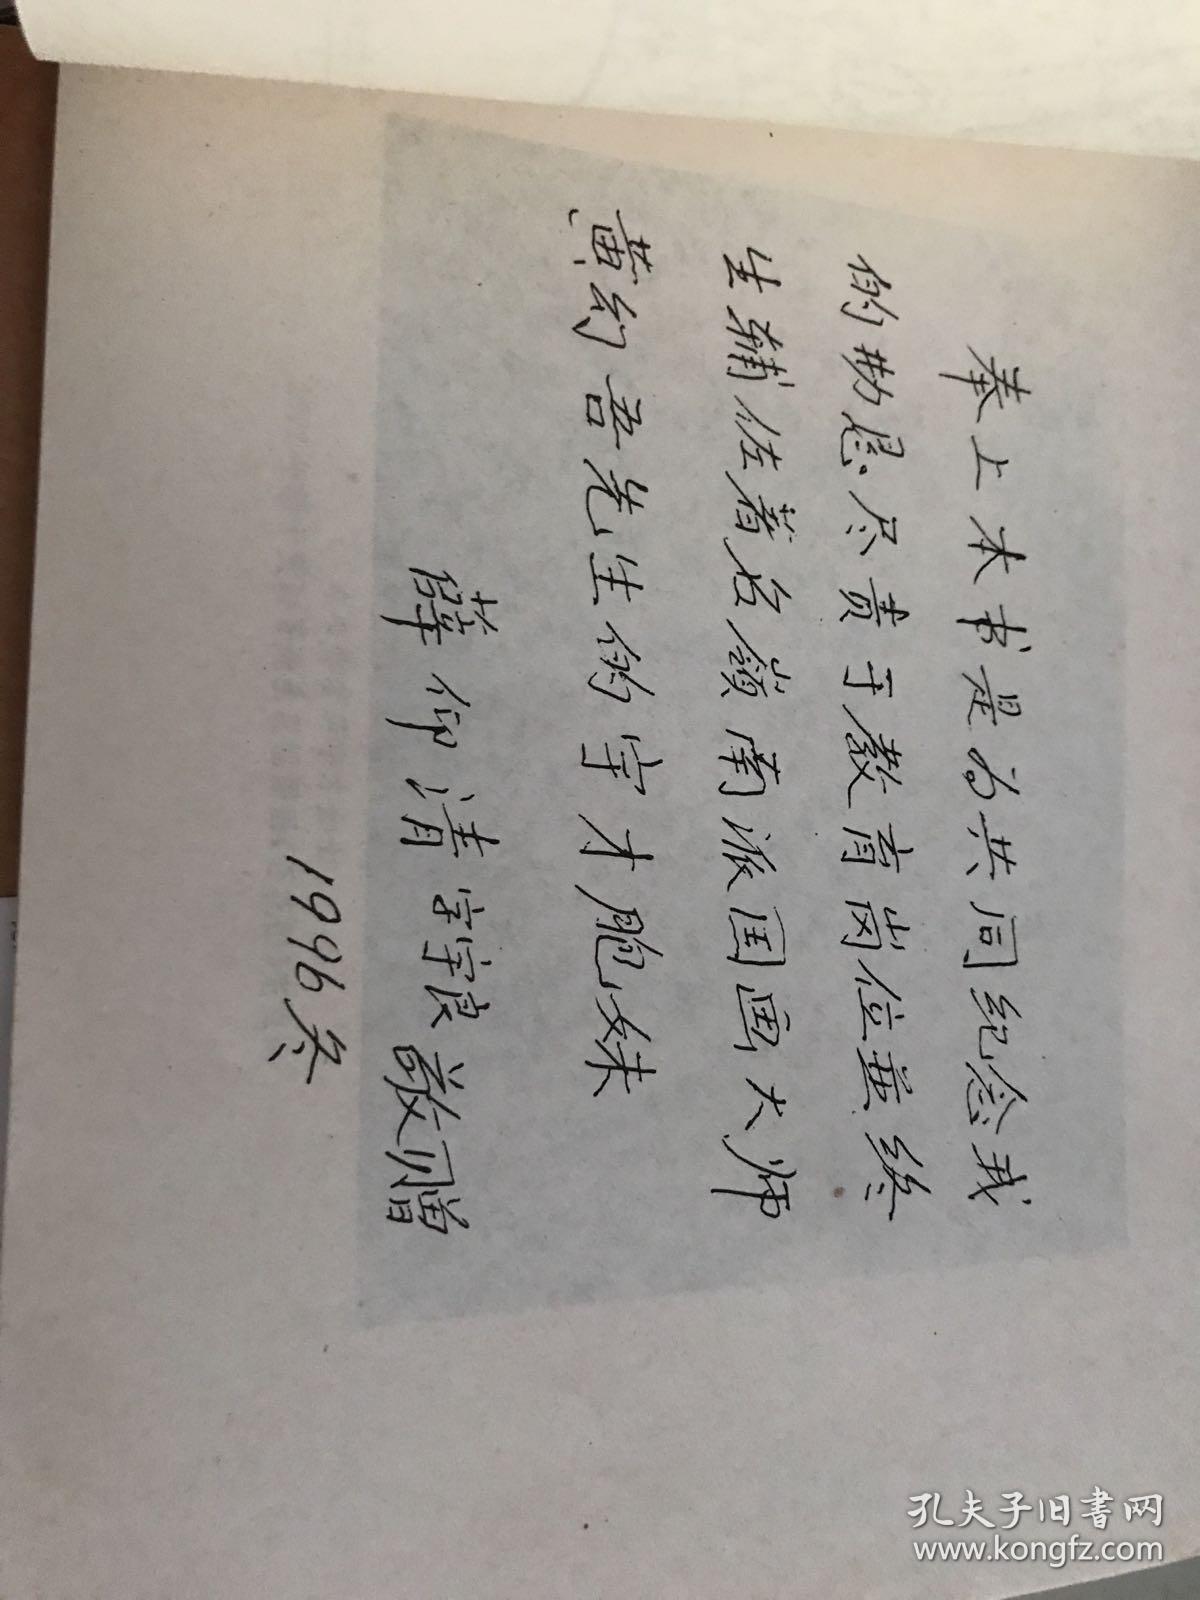 奉上本书是为共同纪念我
的勤恳尽责于教育岗位並终
生辅佐着名嶺南派国画大师
黄幻吾先生的守才胞妹
薛仰清字宇良敬赠
1996冬
孔夫子旧书网
www.kongfz.com